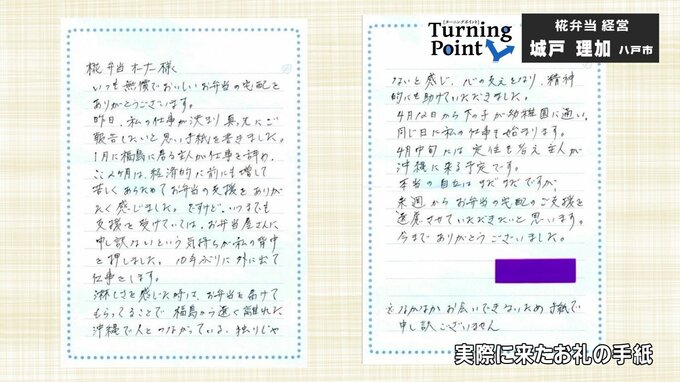 Turning Point
ターニングポイント
椛弁当 経営
城戸 理加 八戸市
椛弁当 わた様
いつも無償でおいしいお弁当の宅配を
ありがとうございます。
昨日、私の仕事が決まり真っ先にご
報告したいと思い手紙を書きました。
1月に福島に居る主人が仕事を辞め、
ここ2ヶ月は、経済的に前にも増して
苦しくあらためてお弁当の支援をありが
たく感じました。ですけど、いつまでも
支援を受けていては、お弁当屋さんに
申し訳ないという気持ちが私の背中
を押しました。10年ぶりに外に出て
仕事をします。
淋しさを感じた時は、お弁当を届けて
もらってることで福島から遠く離れた
沖縄で人とつながっている、独りじゃ
ないと感じ、心の支えとなり、精神
的にも助けていただきました。
4月12日から下の子が幼稚園に通い、
同じ日に私の仕事も始まります。
4月中旬には定住も考え主人が
沖縄に来る予定です。
本当の自立はまだまだですが、
来週からお弁当の宅配のご支援を
遠慮させていただきたいと思います。
今までありがとうございました。
なかなかお会いできないため手紙で
申し訳ございません
実際に来たお礼の手紙